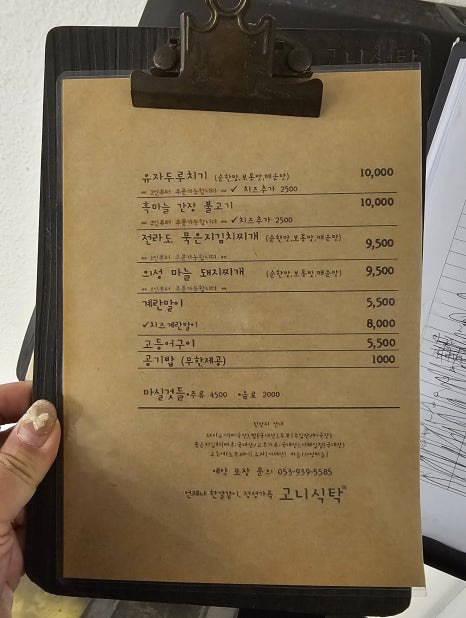 고니식탁
유자두루치기 (순한맛,보통맛,매운맛) 10,000
** 2인부터 주문가능합니다 ** ✓ 치즈추가 2500
흑마늘 간장 불고기 10,000
** 2인부터 주문가능합니다 ** ✓치즈추가 2500
전라도 묵은지김치찌개 (순한맛,보통맛,매운맛) 9,500
주문가능합니다
의성 마늘 돼지찌개 (순한맛,보통맛,매운맛) 9,500
주문가능합니다
계란말이 5,500
✓치즈계란말이 8,000
고등어구이 5,500
공기밥 (무한제공) 1000
마실것들 •주류 4500 •음료 2000
원산지 안내
예약 포장 문의 053-939-5585
언제나 한결같이, 정성가득 고니식탁®